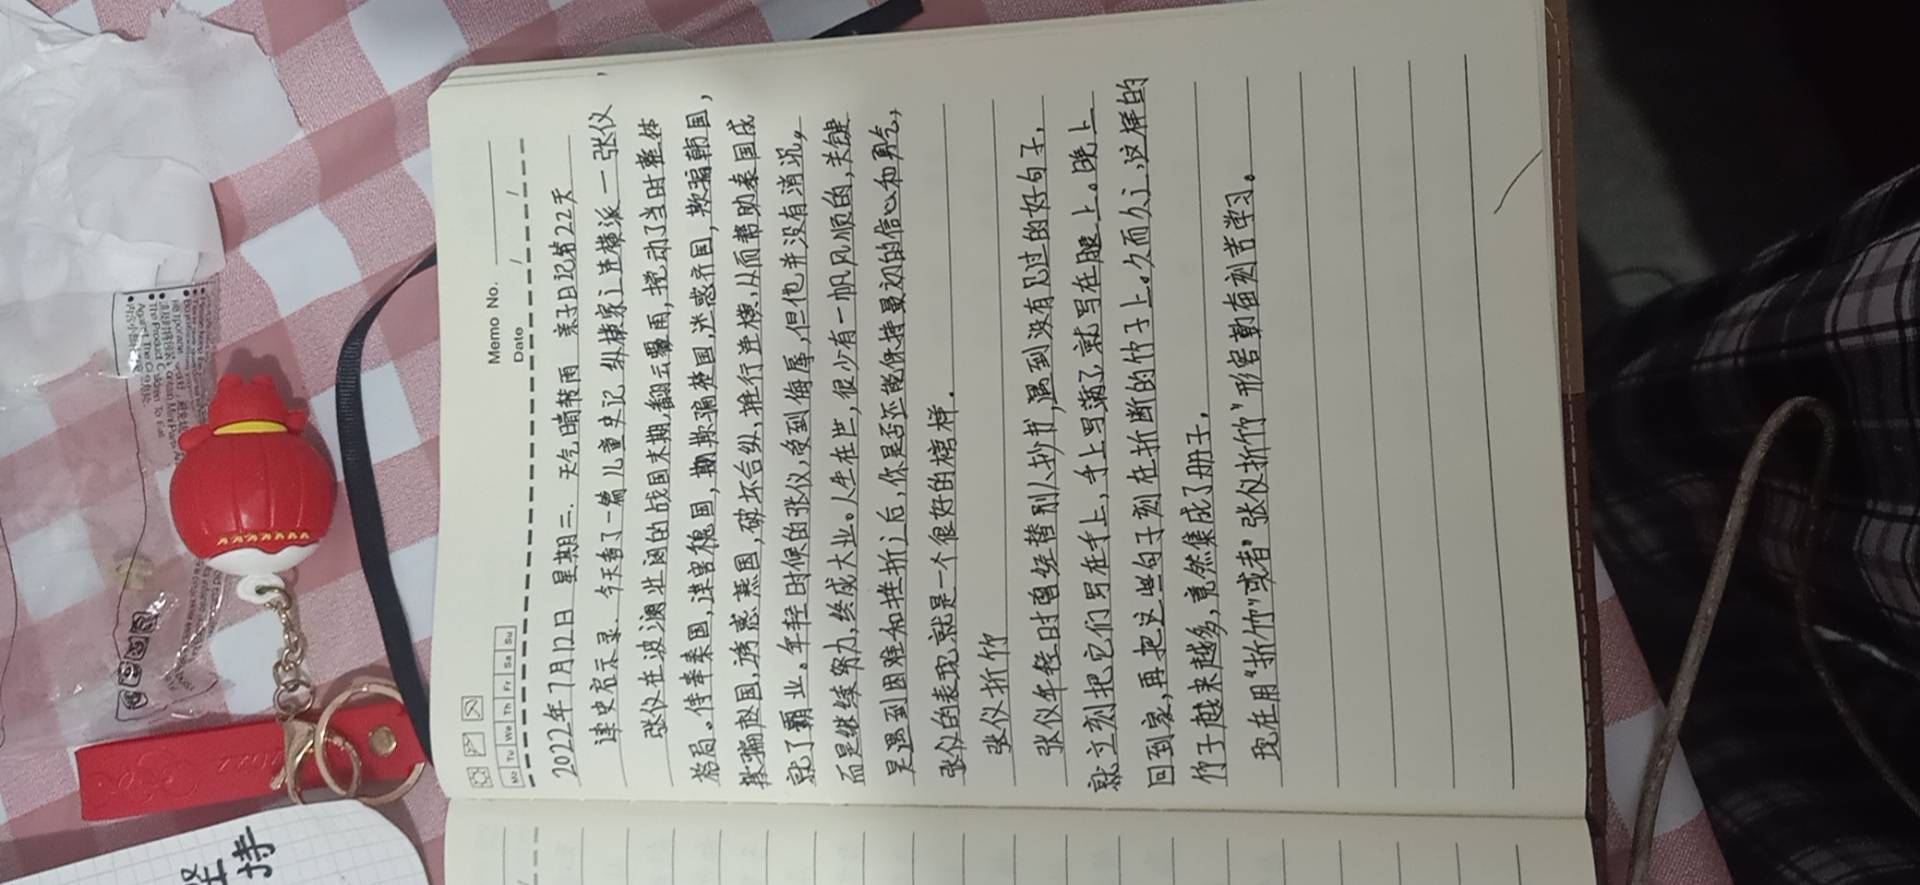 Memo No.
Date / /
Mo Tu We Th Fr Sa Su
2022年7月12日 星期二. 天气晴转雨 亲子日记第22天
读史启示录. 今天看了一篇儿童史记 纵横家之连横派一张仪
张仪在波澜壮阔的战国末期,翻云覆雨,搅动了当时整体
格局。侍奉秦国,谋害魏国,期欺骗楚国,迷惑齐国,欺骗韩国,
欺骗赵国,诱惑燕国,破坏合纵,推行连横,从而帮助秦国成
就了霸业。年轻时候的张仪,受到侮辱,但他并没有消沉,
而是继续努力,终成大业。人生在世,很少有一帆风顺的,关键
是遇到困难和挫折之后,你是否还能保持最初的信心和勇气,
张仪的表现就是一个很好的榜样.
张仪折竹
张仪年轻时曾经替别人抄书,遇到没有见过的好句子,
就立刻把它们写在手上,手上写满了就写在腿上。晚上
回到家,再把这些句子刻在折断的竹子上。久而久之,这样的
竹子越来越多,竟然集成了册子.
现在用"折竹"或者"张仪折竹"形容勤奋刻苦学习。
坚持
The Product